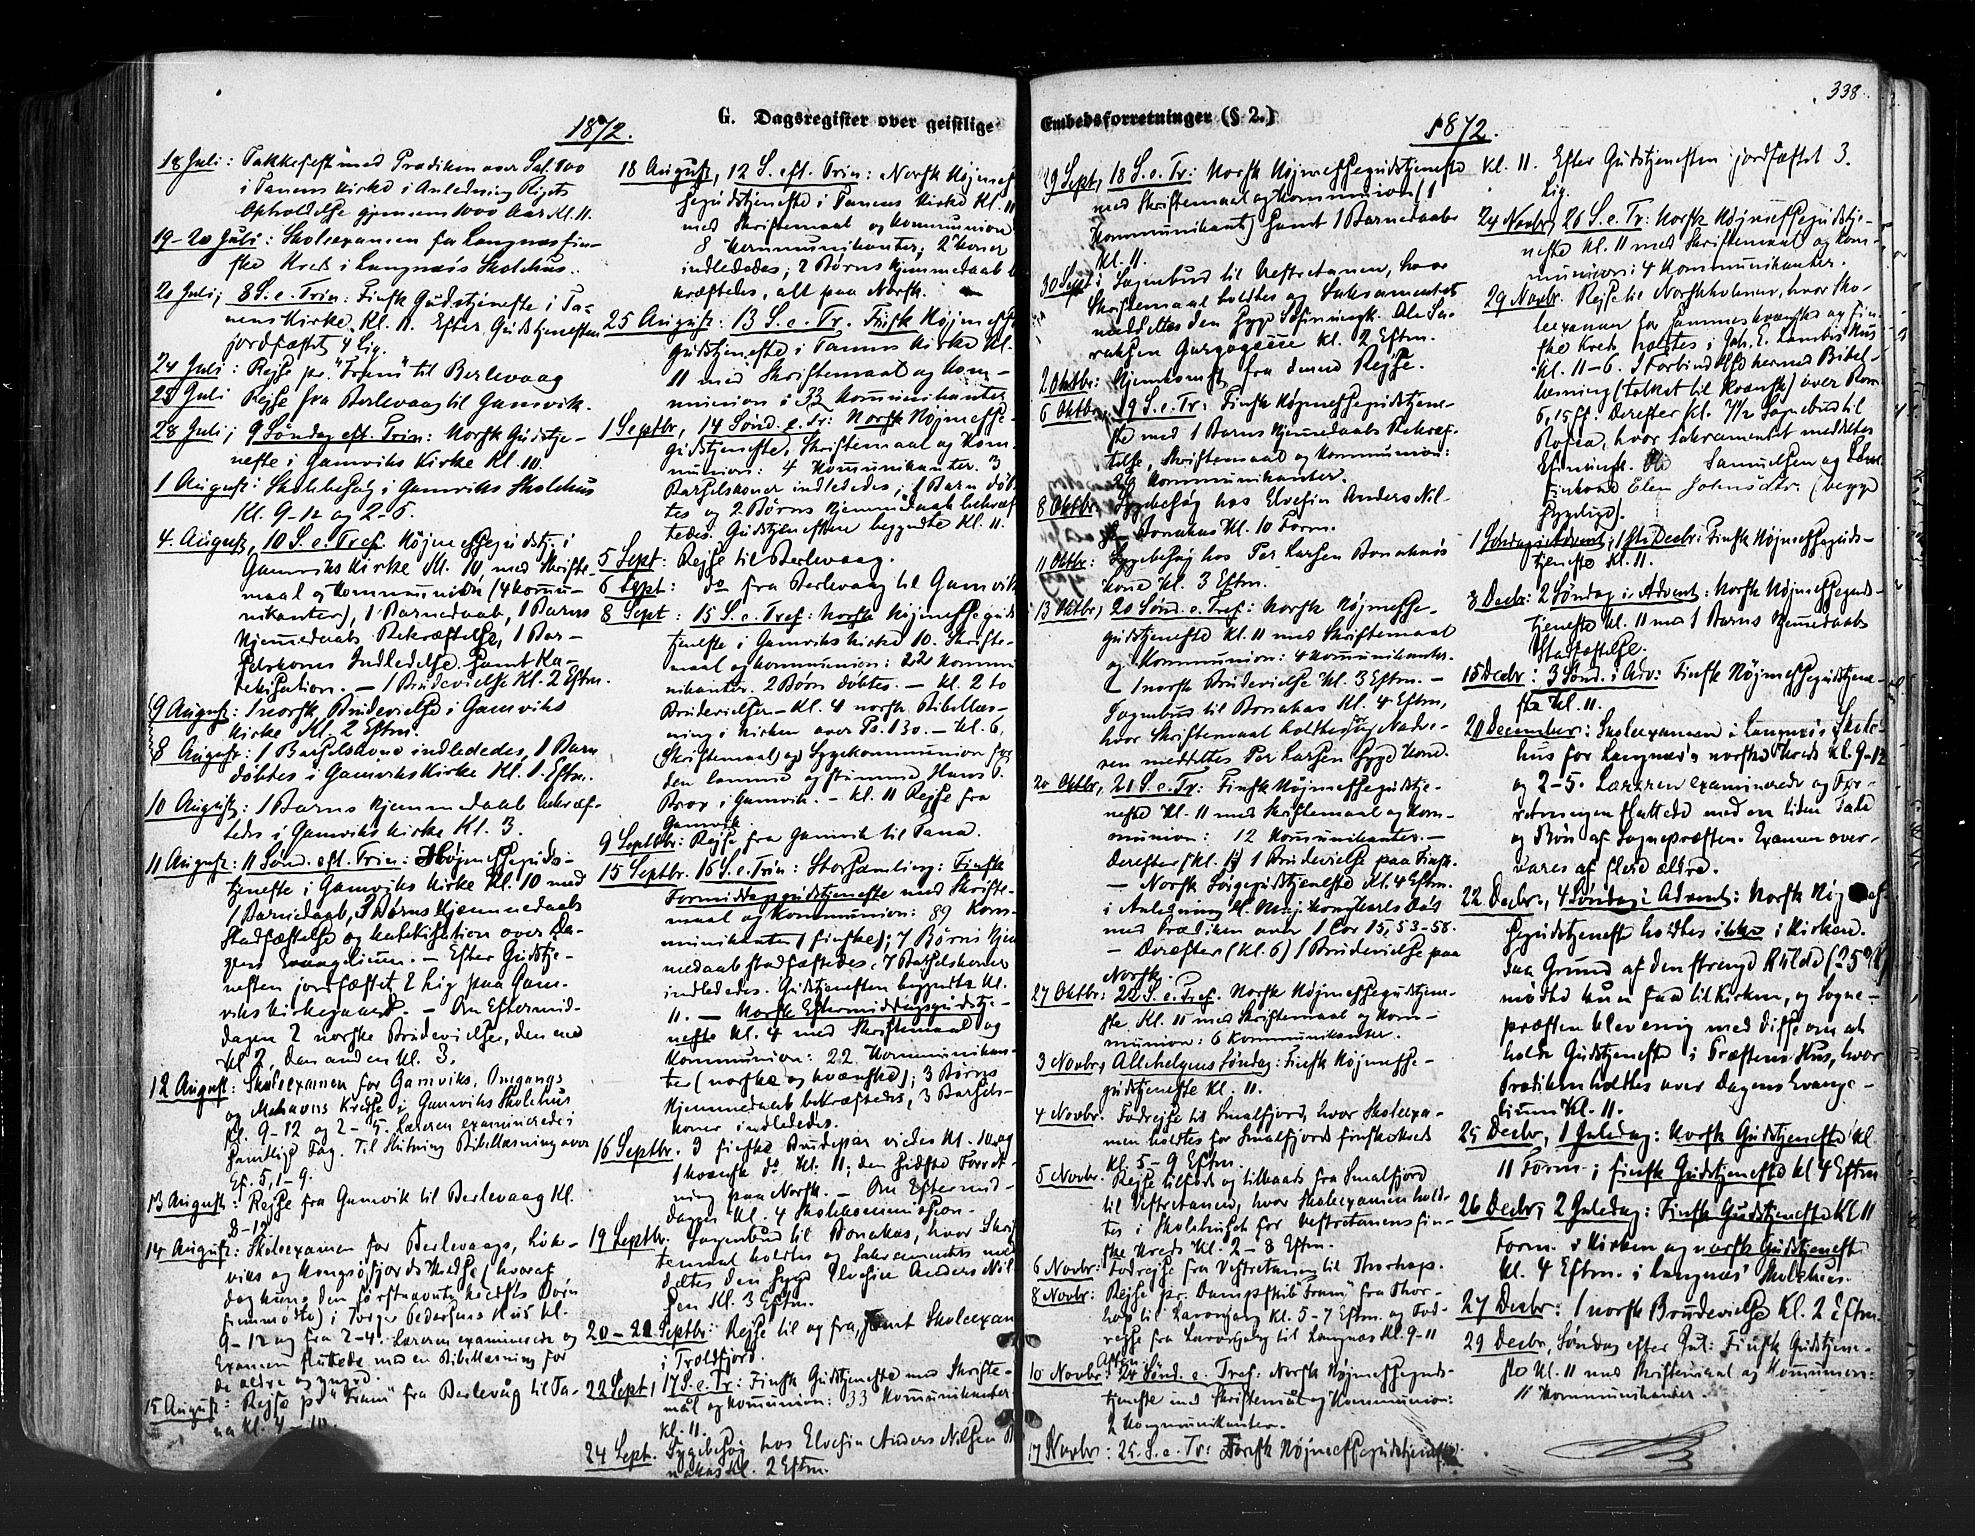 338
G. Dagsregister over geistlige Embedsforretninger (§ 2.)
1872.
18 Juli: Takkefest med Prædiken over Sal. 100
i Tanens Kirke i Anledning Rigets
Opholdelse gjennem 1000 Aar Kl. 11.
19-20 Juli: Skoleexamen for Langnæs fin-
ske Kreds i Langnæs Skolehus.
20 Juli; 8 S. e. Trin: Finsk Gudstjeneste i Ta-
nens Kirke, Kl. 11. Efter Gudstjenesten
jordfæstet 4 Lig.
24 Juli: Rejse pr. "Fram" til Berlevaag
25 Juli Rejse fra Berlevaag til Gamvik.
28 Juli; 9 Søndag eft. Trin: Norsk Gudstje-
neste i Gamviks Kirke Kl. 10.
1 August: Skolebesøg i Gamviks Skolehus
Kl. 9-12 og 2-5.
4. August, 10 S. e. Tref. Højmessegudstj. i
Gamviks Kirke Kl. 10, med Skrifte-
maal og Kommunion (4 Kommu-
nikanter), 1 Barnedaab, 1 Barns
Hjemmedaabs Bekræftelse, 1 Bar-
selskones Indledelse samt Ka-
tekisation. — 1 Brudevielse Kl. 2 Eftm.
9 August: 1 norsk Brudevielse i Gamviks
Kirke Kl. 2 Eftm.
8 August: 1 Barselskone indlededes, 1 Barn
døbtes i Gamviks Kirke Kl. 1 Eftm.
10 August: 1 Barns Hjemmedaab bekræf-
tedes i Gamviks Kirke Kl. 3.
11 August: 11 Sønd. eft. Trin: Højmessegud-
tjeneste i Gamviks Kirke Kl. 10 med
1 Barnedaab, 3 Børns Hjemmedaabs
Stadfæstelse og Katekisation over Da-
gens Evangelium. — Efter Gudstje-
nesten jordfæstet 2 Lig paa Gam-
viks Kirkegaard. — Om Eftermid-
dagen 2 norske Brudevielser, den ene
Kl. 2, den anden Kl. 3.
12 August: Skoleexamen for Gamviks, Omgangs
og Mehavns Kredse i Gamviks Skolehus
Kl. 9-12 og 2-5. Læreren examinerede i
samtlige Fag. Til Slutning Bibellæsning over
Ef. 5, 1-9.
13 August: Rejse fra Gamvik til Berlevaag Kl.
8-12
14 August: Skoleexamen for Berlevaags, Løk-
viks og Kongsøfjords Kredse (hvoraf
dog kuns den førstnævnte Kredses Børn
fremmødte) i Torger Pedersens Hus Kl.
9-12 og fra 2-4. Læreren examinerede og
Examen sluttede med en Bibellæsning for
de ældre og yngre.
15 August: Rejse pr "Fram" fra Berlevåg til Ta-
na Kl. 4-10.
18 August, 12 S. eft. Trin: Norsk Højmes-
segudstjeneste i Tanens Kirke Kl. 11
med Skriftemaal og Kommunion
8 Kommunikanter; 2 Koner
indlededes; 2 Børns Hjemmedaab be-
kræftedes, alt paa Norsk.
25 August: 13 S. e. Tr. Finsk Højmesse-
gudstjeneste i Tanens Kirke Kl.
11 med Skriftemaal og Kom-
munion i 33 Kommunikanter
1 Septbr, 14 Sønd. e. Tr: Norsk Højmesse-
gudstjeneste, Skriftemaal og Kom-
munion: 4 Kommunikanter. 3
Barselskoner indlededes; 1 Barn døb-
tes og 2 Børns Hjemmedaab bekræf-
tedes. Gudstjenesten begyndte Kl. 11.
5 Sept: Rejse til Berlevaag.
6 Sept: do fra Berlevaag til Gamvik
8 Sept: 15 S. e. Tref: Norsk Højmessegud-
tjeneste i Gamviks Kirke 10. Skrifte-
maal og Kommunion: 22 Kommu-
nikanter. 2 Børn døbtes. — Kl. 2 to
Brudevielser — Kl. 4 norsk Bibellæs-
ning i Kirken over Ps. 130. — Kl. 6,
(Skriftemaal) og Sygekommunion for
den lamme og stumme Hans P.
Brox i Gamvik. — Kl. 11 Rejse fra
Gamvik
9 Septbr: Rejse fra Gamvik til Tana.
15 Septbr. 16 S. e. Trin: Storsamling: Finsk
Formiddagsgudstjeneste med Skrifte-
maal og Kommunion: 89 Kom-
munikanter (finske); 7 Børns Hjem-
medaab stadfæstedes, 7 Barselskoner
indlededes. Gudstjenesten begyndte Kl.
11. — Norsk Eftermiddagsgudstj-
neste Kl. 4 med Skriftemaal og
Kommunion: 22 Kommunikan-
ter (norske og kvænske); 3 Børns
Hjemmedaab bekræftedes, 3 Barsels-
koner indlededes.
16 Septbr. 3 finske Brudepar viedes Kl. 10 og
1 kvænsk do Kl. 11; den sidste Forret-
ning paa Norsk. — Om Eftermid-
dagen Kl. 4 Skolekommission.
19 Septbr. Sognebud til Bonakas, hvor Skrif-
temaal holdtes og Sakramentet med-
deltes den syge Elvefin Anders Nil-
sen Kl. 3 Eftm.
20-21 Septbr: Rejse til og fra, samt Skoleexam
i Troldfjord.
22 Sept, 17 S. e. Tr: Finsk Gudstjeneste med Skrifte-
mål og Kommunion: 33 Kommunikanter
Kl. 11.
24 Sept. Sygebesøg hos Elvefin Anders Nilsen B
nakas Kl. 2 Eftm.
1872.
29 Sept, 18 S. e. Tr: Norsk Højmessegudstjeneste
med Skriftemaal og Kommunion (1
Kommunikant) samt 1 Barnedaab
Kl. 11.
30 Sept: Sognebud til Vestretanen, hvor
Skriftemaal holdtes og Sakramentet
meddeltes den syge
Kl. 2 Eftm.
2 Oktbr: Hjemkomst fra denne Rejse.
6 Oktbr, 19 S. e. Tr: Finsk Højmessegudstjene-
ste med 1 Barns Hjemmedaabs Bekræf-
telse, Skriftemaal og Kommunion:
29 Kommunikanter.
8 Oktbr: Sygebesøg hos Elvefin Anders Nil-
sen — Bonakas Kl. 10 Form.
11 Oktbr: Sygebesøg hos Per Larsen Bonakas's
Kone Kl. 3 Eftm.
13 Oktbr, 20 Sønd. e. Tref: Norsk Højmesse-
gudstjeneste Kl. 11 med Skriftemaal
og Kommunion: 4 Kommunikanter.
— 1 norsk Brudevielse Kl. 3 Eftm. —
Sognebud til Bonakas Kl. 4 Eftm,
hvor Skriftemaal holdtes og Nadve-
ren meddeltes Per Larsen syge Kone.
20 Oktbr, 21 S. e. Tr: Finsk Højmessegudstje-
neste Kl. 11 med Skriftemaal og Kom-
munion: 12 Kommunikanter. —
Derefter (Kl. 1) 1 Brudevielse paa Finsk.
— Norsk Sørgegudstjeneste Kl. 4 Eftm.
i Anledning H. Maj. Kong Karls Død
med Prædiken over 1 Cor 15, 53-58.
— Derefter (Kl. 6) 1 Brudevielse paa
Norsk.
27 Oktbr: 22 S. e. Tref. Norsk Højmessegudstjene-
ste Kl. 11 med Skriftemaal og Kom-
munion: 6 Kommunikanter.
3 Novbr, Allehelgens Søndag: Finsk Højmesse-
gudstjeneste Kl. 11.
4 Novbr. Fodrejse til Smalfjord, hvor Skoleexa-
men holdtes for Smalfjords finske Kreds
Kl. 5-9 Eftm.
5 Novbr. Rejse tilfods og tilbaads fra Smalfjord
til Vestretanen, hvor Skoleexamen hold-
tes i Skolehuset for Vestretanens fin-
ske Kreds Kl. 2-8 Eftm.
6 Novbr: Fodrejse fra Vestretanen til Thorhop.
8 Novbr: Rejse pr. Dampskib "Fram" fra Thor-
hop til Lavonjarg Kl. 5-7 Eftm. og Fod-
rejse fra Lavonjarg til Langnæs Kl. 9-11
Aften.
10 Novbr: 24 Sønd. e. Tref. Norsk Højmessegud-
tjeneste med Skriftemål og Kommunion:
2 Kommunikanter.
17 Novbr: 25. S. e. Tr: Finsk Højmessegudstjeneste
Kl. 11. Efter Gudstjenesten jordfæstet 3.
Lig.
24 Novbr, 26 S. e. Tr: Norsk Højmessegudstje-
neste Kl. 11 med Skriftemaal og Kom-
munion: 4 Kommunikanter.
29 Novbr. Rejse til Norskholmen, hvor Sko-
leexamen for Sammes kvænske og fin-
ske Kreds holdtes i Joh. E. Hus
Kl. 11-6. I Forbindelse hermed Bibel-
læsning (tolket til Kvænsk) over Rom
6, 15 ff. Derefter Kl. 7½ Sognebud til
, hvor Sakramentet meddeltes
Samuelsen og
Finkone Elen Johnsdtr. (begge
sygelige).
1 Søndag i Advent, 1ste Decbr: Finsk Højmessegud-
tjeneste Kl. 11.
8 Decbr: 2 Søndag i Advent: Norsk Højmessegud-
tjeneste Kl. 11 med 1 Barns Hjemmedaabs
Stadfæstelse.
15 Decbr: 3 Sønd. i Adv: Finsk Højmessegudstjene-
ste Kl. 11.
20 December: Skoleexamen i Langnæs Skole-
hus for Langnæs's norske Kreds Kl. 9-12
og 2-5. Læreren examinerede og For-
retningen sluttede med en liden Tale
og Bøn af Sognepræsten. Examen over-
vares af flere ældre.
22 Decbr., 4 Søndag i Advent: Norsk Højmes-
segudstjeneste holdtes ikke i Kirken.
Paa Grund af den strenge Kulde (÷25° R)
mødte kun faa til Kirken, og Sogne-
præsten blev enig med disse om at
holde Gudstjeneste i Præstens Hus, hvor
Prædiken holdtes over Dagens Evange-
lium Kl. 11.
25 Decbr, 1 Juledag: Norsk Gudstjeneste Kl.
11 Form. i finsk Gudstjeneste Kl 4 Eftm
26 Decbr, 2 Juledag: Finsk Gudstjeneste Kl 11
Form. i Kirken og norsk Gudstjeneste
Kl. 4 Eftm. i Langnæs' Skolehus.
27 Decbr: 1 norsk Brudevielse Kl. 2 Eftm.
29 Decbr, Søndag efter Jul: Finsk Gudstjene-
ste Kl. 11 med Skriftemaal og Kommunion:
11 Kommunikanter.